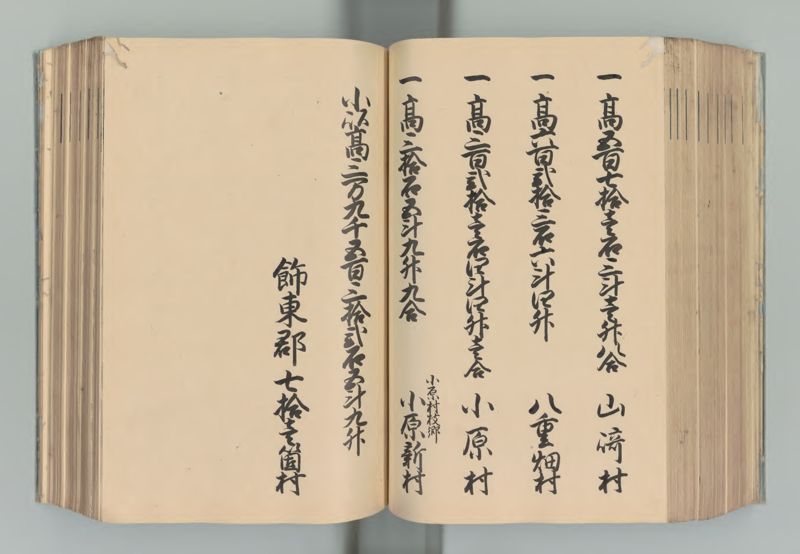 一高五百七拾壱石三斗壱升八合 山﨑村
一高六百弐拾三石六斗四升 八重畑村
一高三百弐拾壱石四斗四升壱合 小原村
小原村枝郷
一高三拾石五斗九升九合 小原新村
小以高三万九千五百三拾弐石五斗九升
飾東郡七拾壱箇村